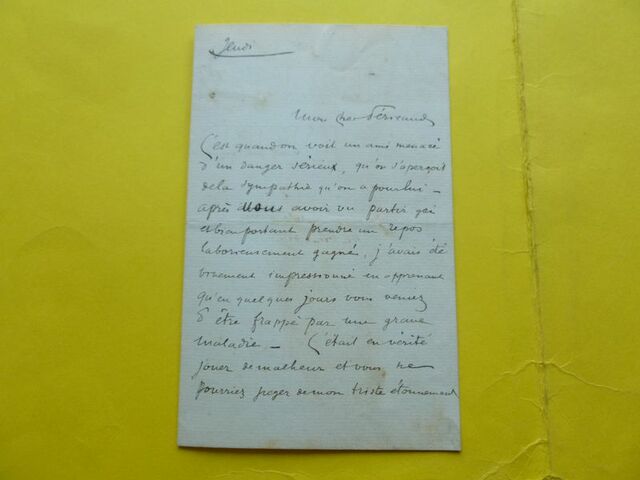 Jeudi
Mon cher
C'est quand on voit un ami menacé
d'un danger sérieux, qu'on s'aperçoit
de la sympathie qu'on a pour lui -
après vous avoir vu partir gai
et bien portant prendre un repos
laborieusement gagné, j'avais été
vivement impressionné en apprenant
qu'en quelques jours vous veniez
d'être frappé par une grave
maladie - C'était en vérité
jouer de malheur et vous ne
pourriez juger de mon triste étonnement